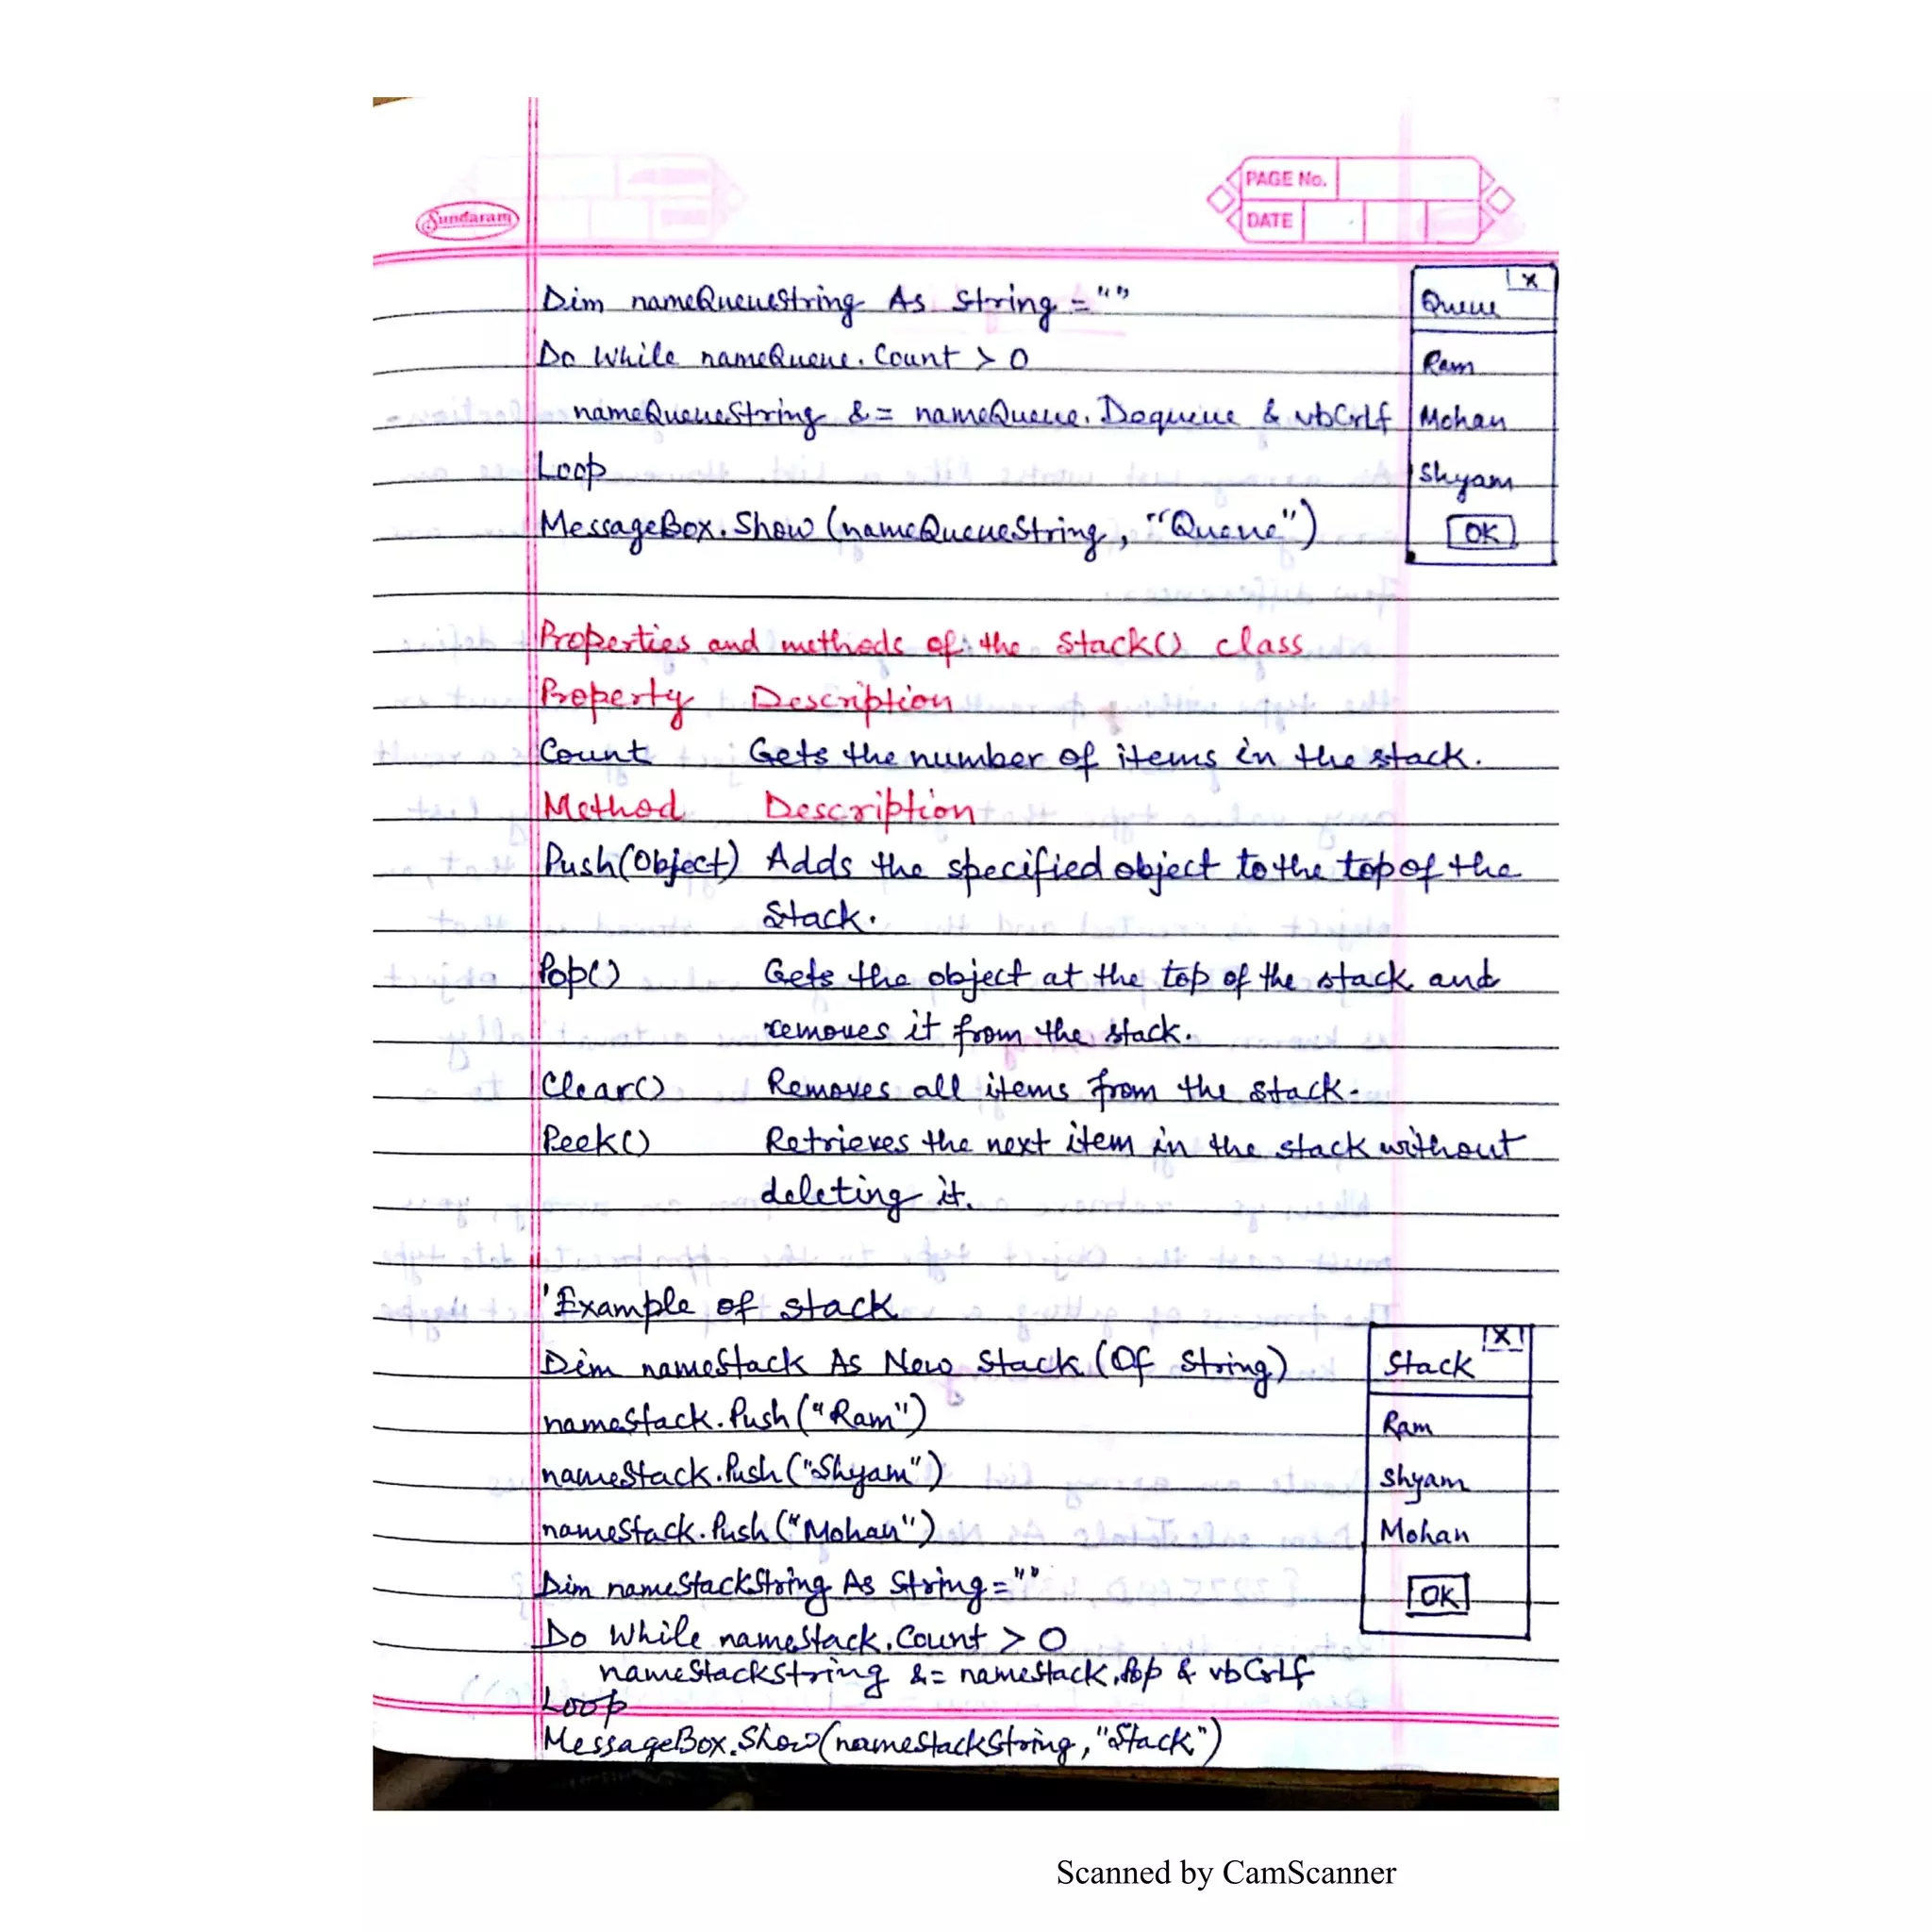 Sundaram
PAGE No.
DATE
Dim nameQueueString As String = ""
Do While nameQueue.Count > 0
nameQueueString &= nameQueue.Dequeue & vbCrLf
Loop
MessageBox.Show (nameQueueString, "Queue")
X
Queue
Ram
Mohan
Shyam
OK
Properties and methods of the Stack() class
Property Description
Count Gets the number of items in the stack.
Method Description
Push(Object) Adds the specified object to the top of the
Stack.
Pop() Gets the object at the top of the stack and
removes it from the stack.
Clear() Removes all items from the stack.
Peek() Retrieves the next item in the stack without
deleting it.
'Example of stack
Dim nameStack As New Stack (Of String)
nameStack.Push ("Ram")
nameStack.Push ("Shyam")
nameStack.Push ("Mohan")
Dim nameStackString As String = ""
Do While nameStack.Count > 0
nameStackString &= nameStack.Pop & vbCrLf
Loop
MessageBox.Show(nameStackString, "Stack")
X
Stack
Ram
Shyam
Mohan
OK
Scanned by CamScanner